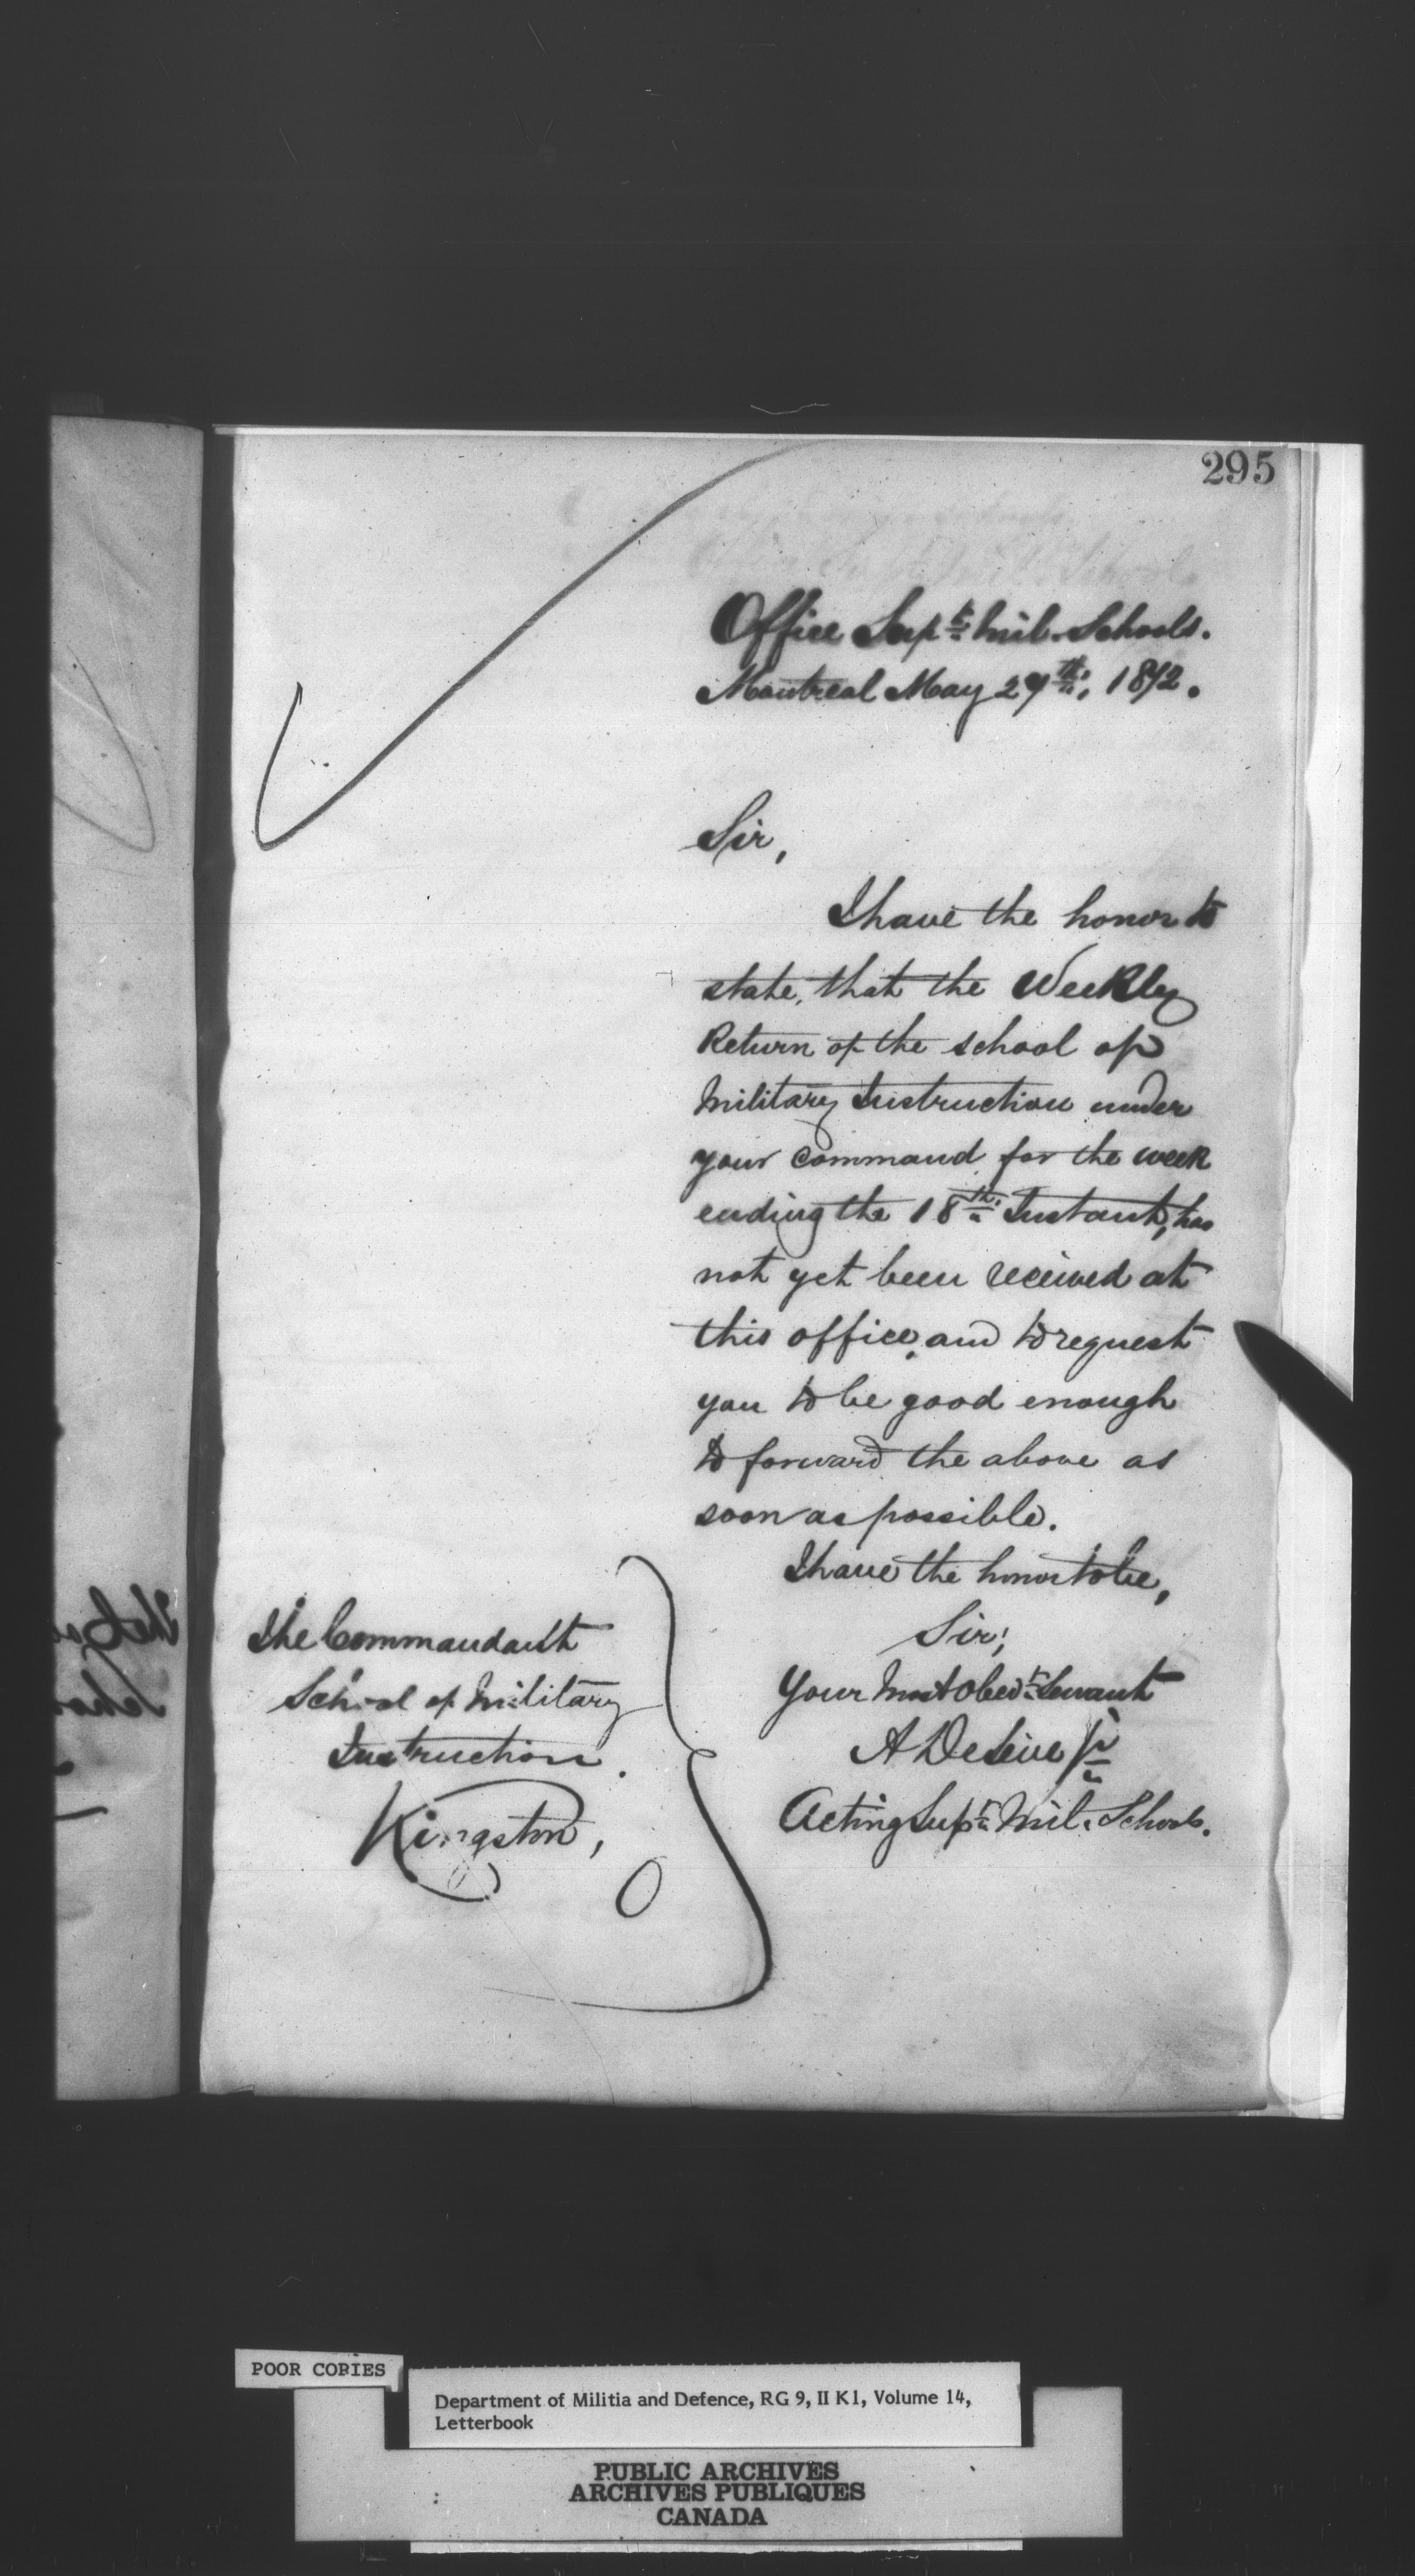 295
Office Supt. Mil. Schools.
Montreal May 27th, 1872.
Sir,
I have the honor to
state, that the Weekly
Return of the school of
Military Instruction under
your command for the week
ending the 18th Instant, has
not yet been received at
this office, and to request
you to be good enough
to forward the above as
soon as possible.
I have the honor to be,
Sir,
Your Most Obedt Servant
A DeLeive Jr
Acting Supt. Mil. Schools.
The Commandant
School of Military
Instruction.
Kingston,
POOR COPIES
Department of Militia and Defence, RG 9, II K1, Volume 14,
Letterbook
PUBLIC ARCHIVES
ARCHIVES PUBLIQUES
CANADA